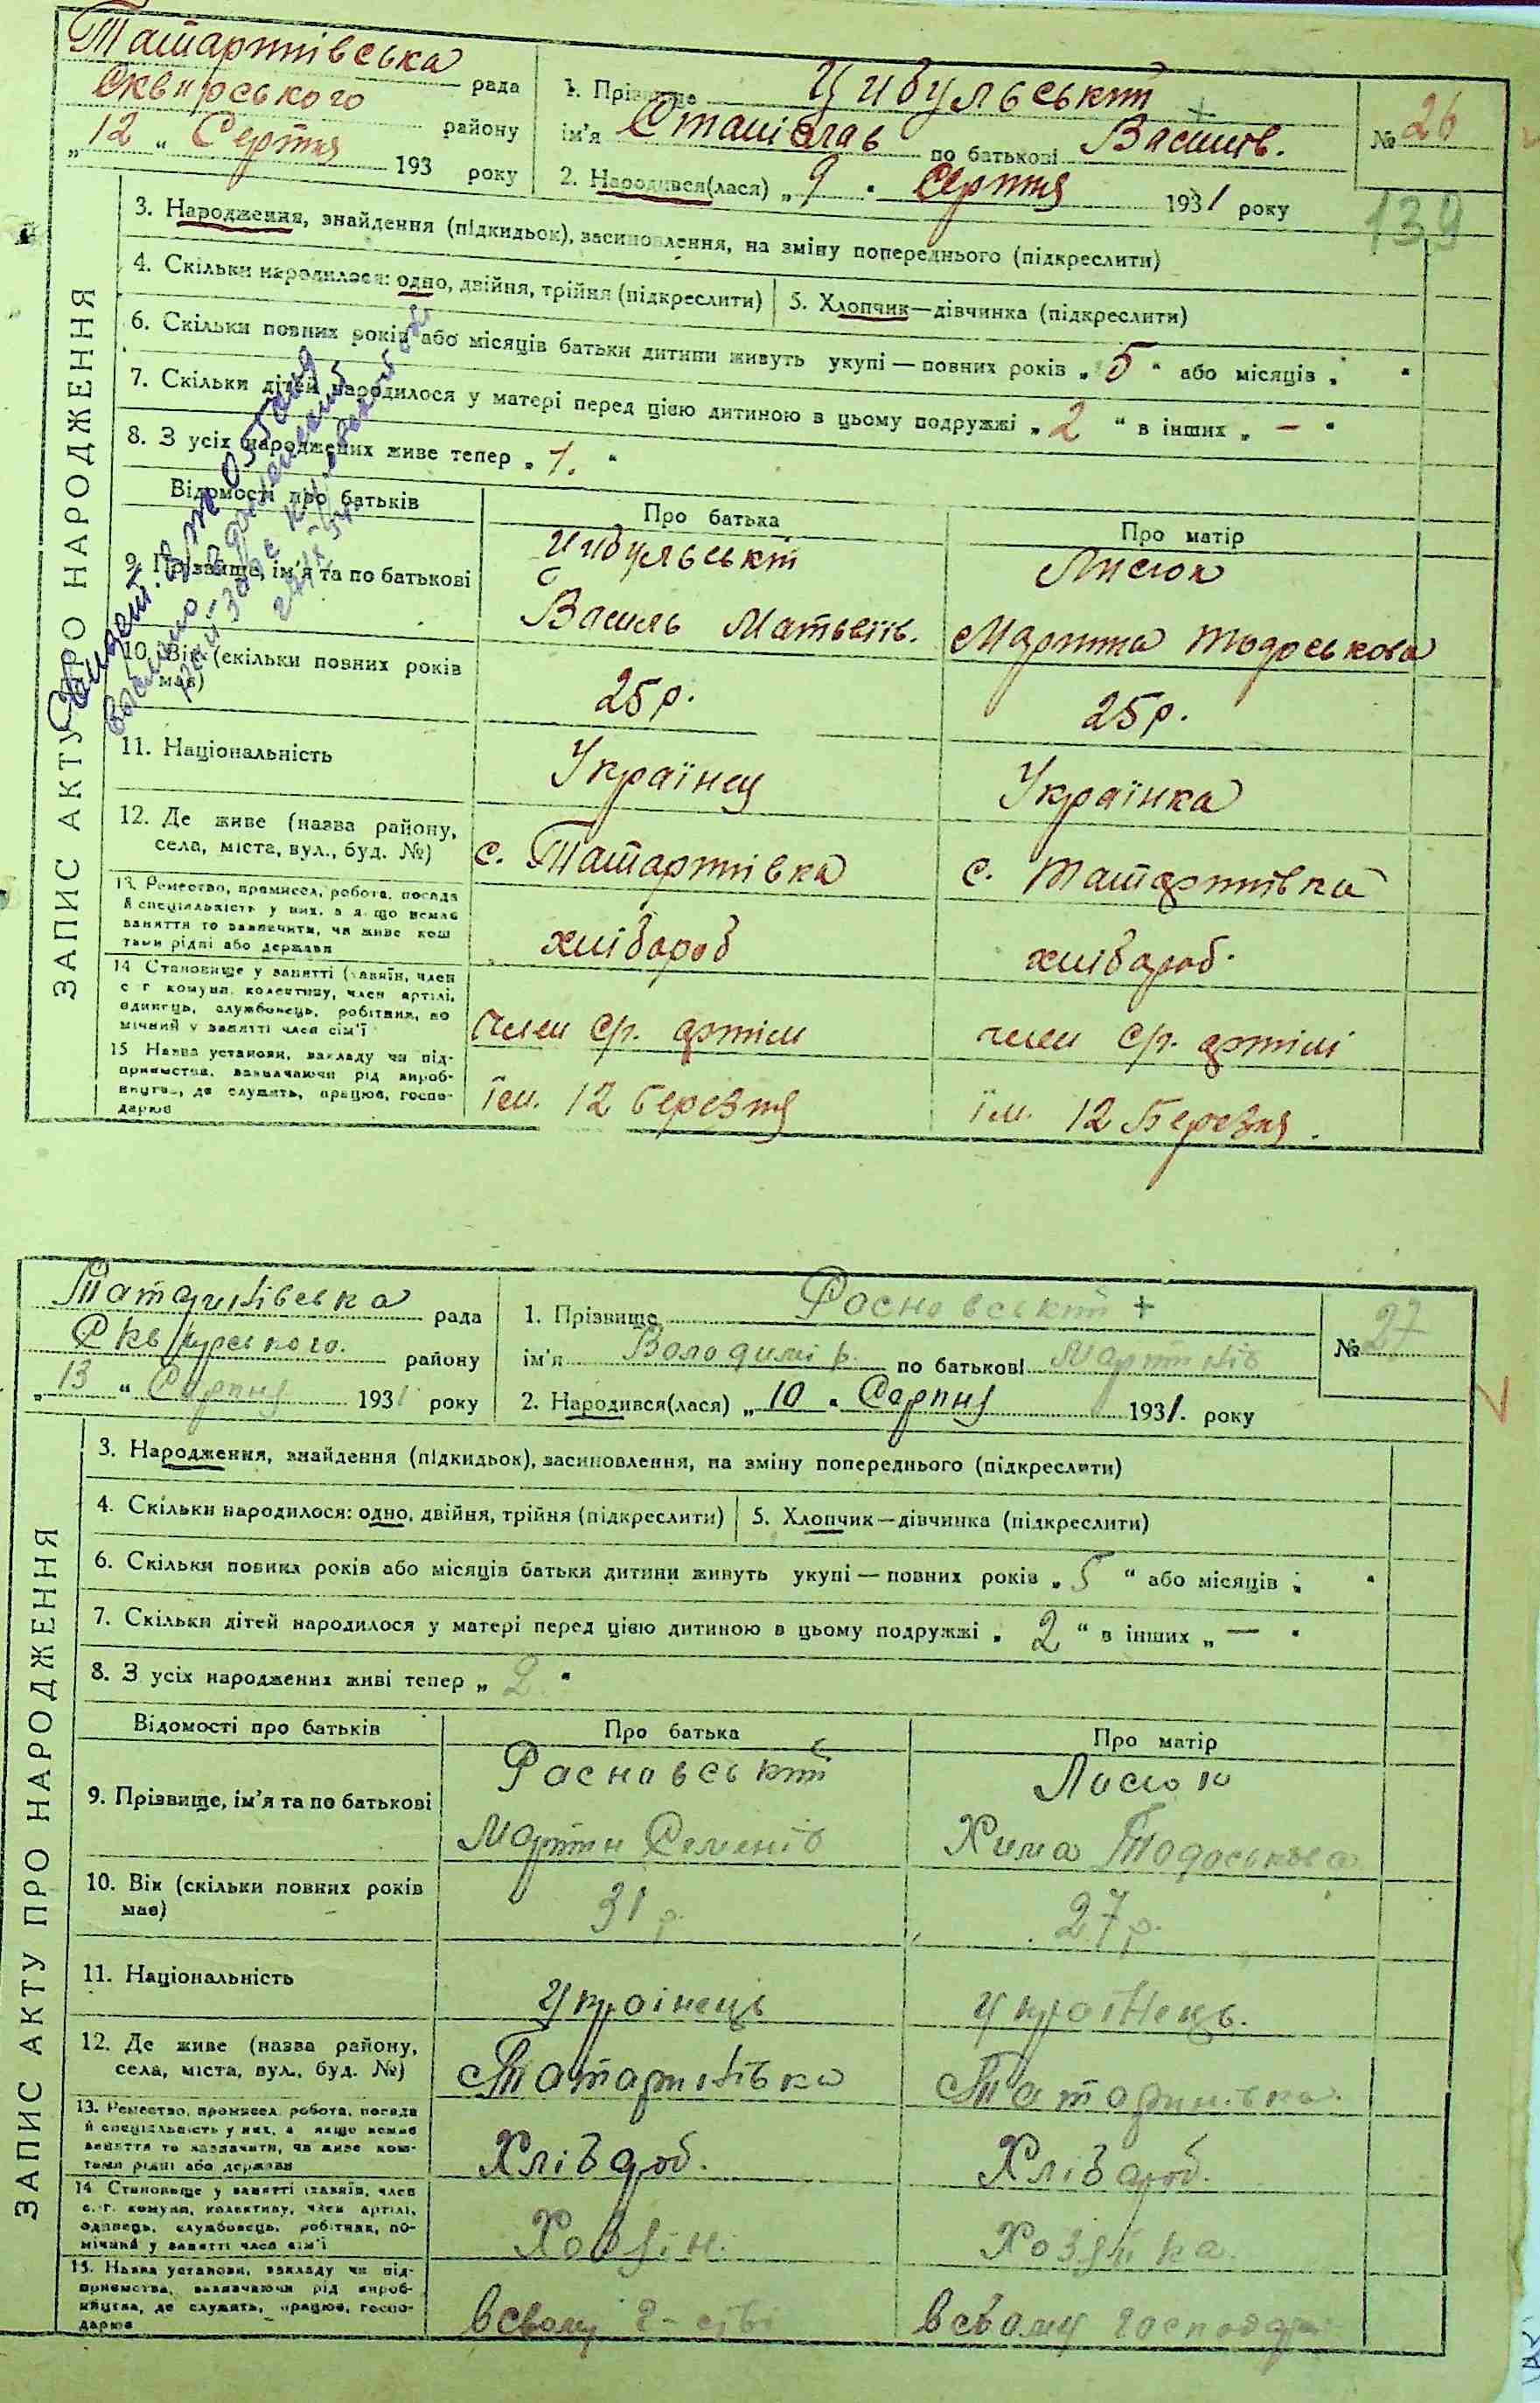 Татартівська рада
Сквирського району
„12" Серпня 193 року
1. Прізвище Цибульський +
ім'я Станіслав по батькові Василів.
2. Народився(лася) „9" Серпня 1931 року
№ 26
139
ЗАПИС АКТУ ПРО НАРОДЖЕННЯ
3. Народження, знайдення (підкидьок), засиновлення, на зміну попереднього (підкреслити)
4. Скільки народилося: одно, двійня, трійня (підкреслити)
5. Хлопчик—дівчинка (підкреслити)
6. Скільки повних років або місяців батьки дитини живуть укупі — повних років „5" або місяців „ "
7. Скільки дітей народилося у матері перед цією дитиною в цьому подружжі „2" в інших „—"
8. З усіх народжених живе тепер „1."
Відомості про батьків
Про батька
Про матір
9. Прізвище, ім'я та по батькові
Цибульський
Василь Матвіїв.
Лисюк
Марина Тодоськова
10. Вік (скільки повних років має)
25 р.
25 р.
11. Національність
Українец
Українка
12. Де живе (назва району,
села, міста, вул., буд. №)
с. Татартівка
с. Татартівка
13. Ремество, промисел, робота, посада
й спеціяльність у них, а якщо немає
заняття то зазначити, чи живе кош
тами рідні або держави
хлібороб
хлібороб.
14 Становище у занятті (хазяїн, член
с г комуни, колективу, член артілі,
одинець, службовець, робітник, по
мічний у занятті член сім'ї
член ср. артіли
член ср. артілі
15 Назва установи, закладу чи під-
приємства, зазначаючи рід вироб-
ництва, де служить, працює, госпо-
дарює
їм. 12 березня
їм. 12 Березня.
Татаринівська рада
Сквирського. району
„13" Серпня 1931 року
1. Прізвище Росновський +
ім'я Володимір. по батькові Мартинів
2. Народився(лася) „10" Серпня 1931. року
№ 27
ЗАПИС АКТУ ПРО НАРОДЖЕННЯ
3. Народження, знайдення (підкидьок), засиновлення, на зміну попереднього (підкреслити)
4. Скільки народилося: одно, двійня, трійня (підкреслити)
5. Хлопчик—дівчинка (підкреслити)
6. Скільки повних років або місяців батьки дитини живуть укупі — повних років „5" або місяців „ "
7. Скільки дітей народилося у матері перед цією дитиною в цьому подружжі „2" в інших „—"
8. З усіх народжених живі тепер „2"
Відомості про батьків
Про батька
Про матір
9. Прізвище, ім'я та по батькові
Росновський
Мартин Семенів
Лисюк
Хима Тодоськова
10. Вік (скільки повних років
має)
31 р.
27 р.
11. Національність
Українець
Українець.
12. Де живе (назва району,
села, міста, вул., буд. №)
с Татаринівка
с Татаринівка.
13. Ремество, промисел, робота, посада
й спеціяльність у них, а якщо немає
заняття то зазначити, чи живе кош-
тами рідні або держави
Хлібороб.
Хлібороб.
14 Становище у занятті (хазяїн, член
с. г. комуни, колективу, член артілі,
одинець, службовець, робітник, по-
мічний у занятті член сім'ї
Хозяїн.
Хозяйка.
15. Назва установи, закладу чи під-
приємства, зазначаючи рід вироб-
ництва, де служить, працює, госпо-
дарює
в свому г-стві
в свому господар